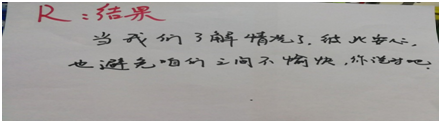 R:结果
当我们了解情况了,彼此安心,
也避免咱们之间不愉快,你说对吧